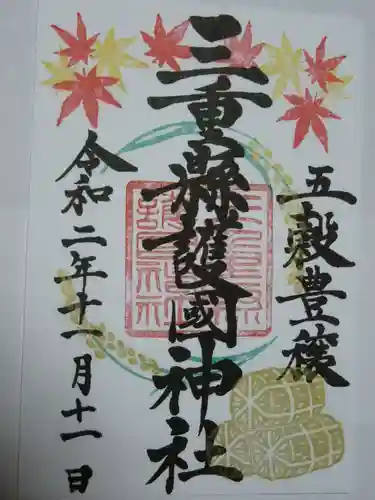 五穀豊穣
三重縣護國神社
令和二年十一月十一日